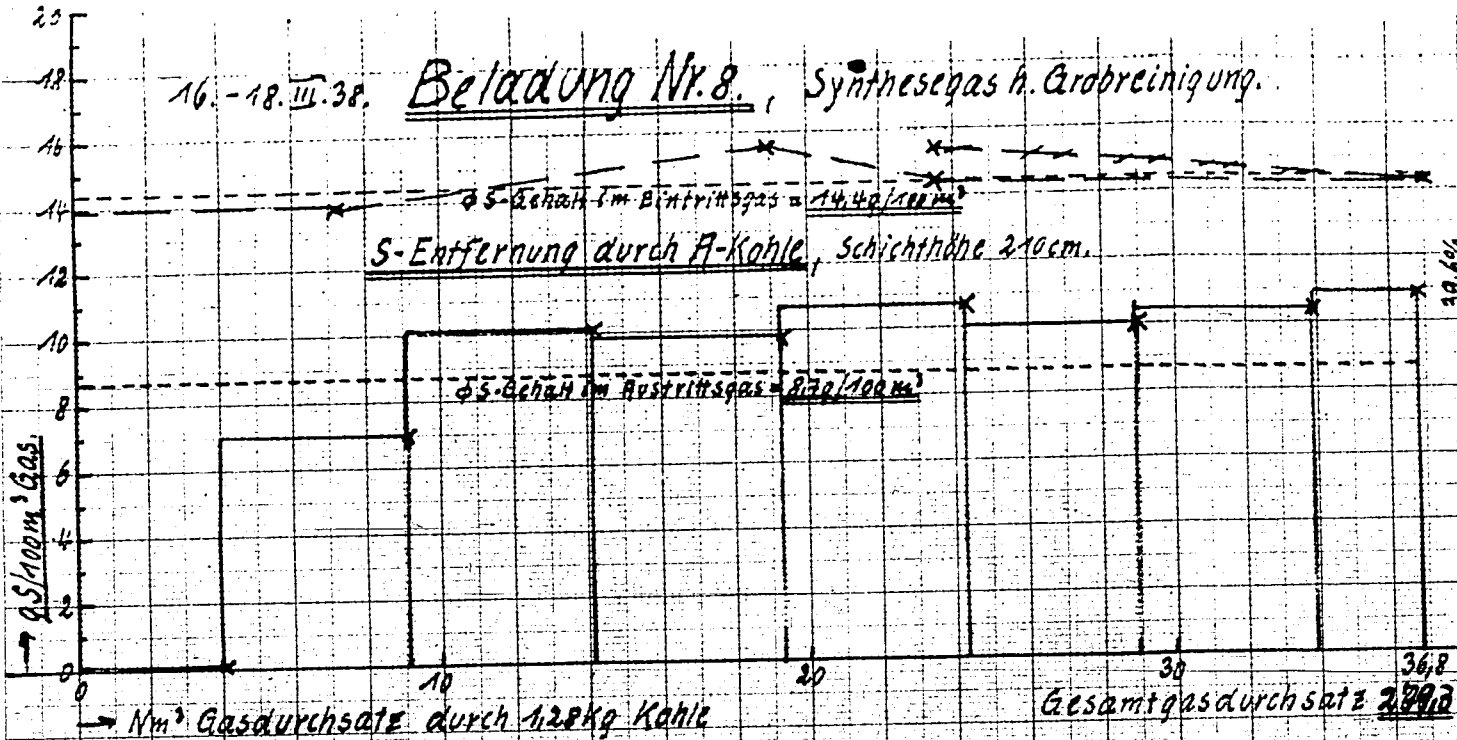 23
18
16
14
12
10
8
6
4
2
0
16.-18.III.38. Beladung Nr.8., Synthesegas h. Grobreinigung.
ϕ S-Gehalt im Eintrittsgas = 14,4g/100m³
S-Entfernung durch A-Kohle, Schichthöhe 210cm.
ϕ S-Gehalt im Austrittsgas = 8,7g/100m³
→ gS/100m³ Gas.
0 10 20 30 36,8
→ Nm³ Gasdurchsatz durch 1,28kg Kohle
Gesamtgasdurchsatz